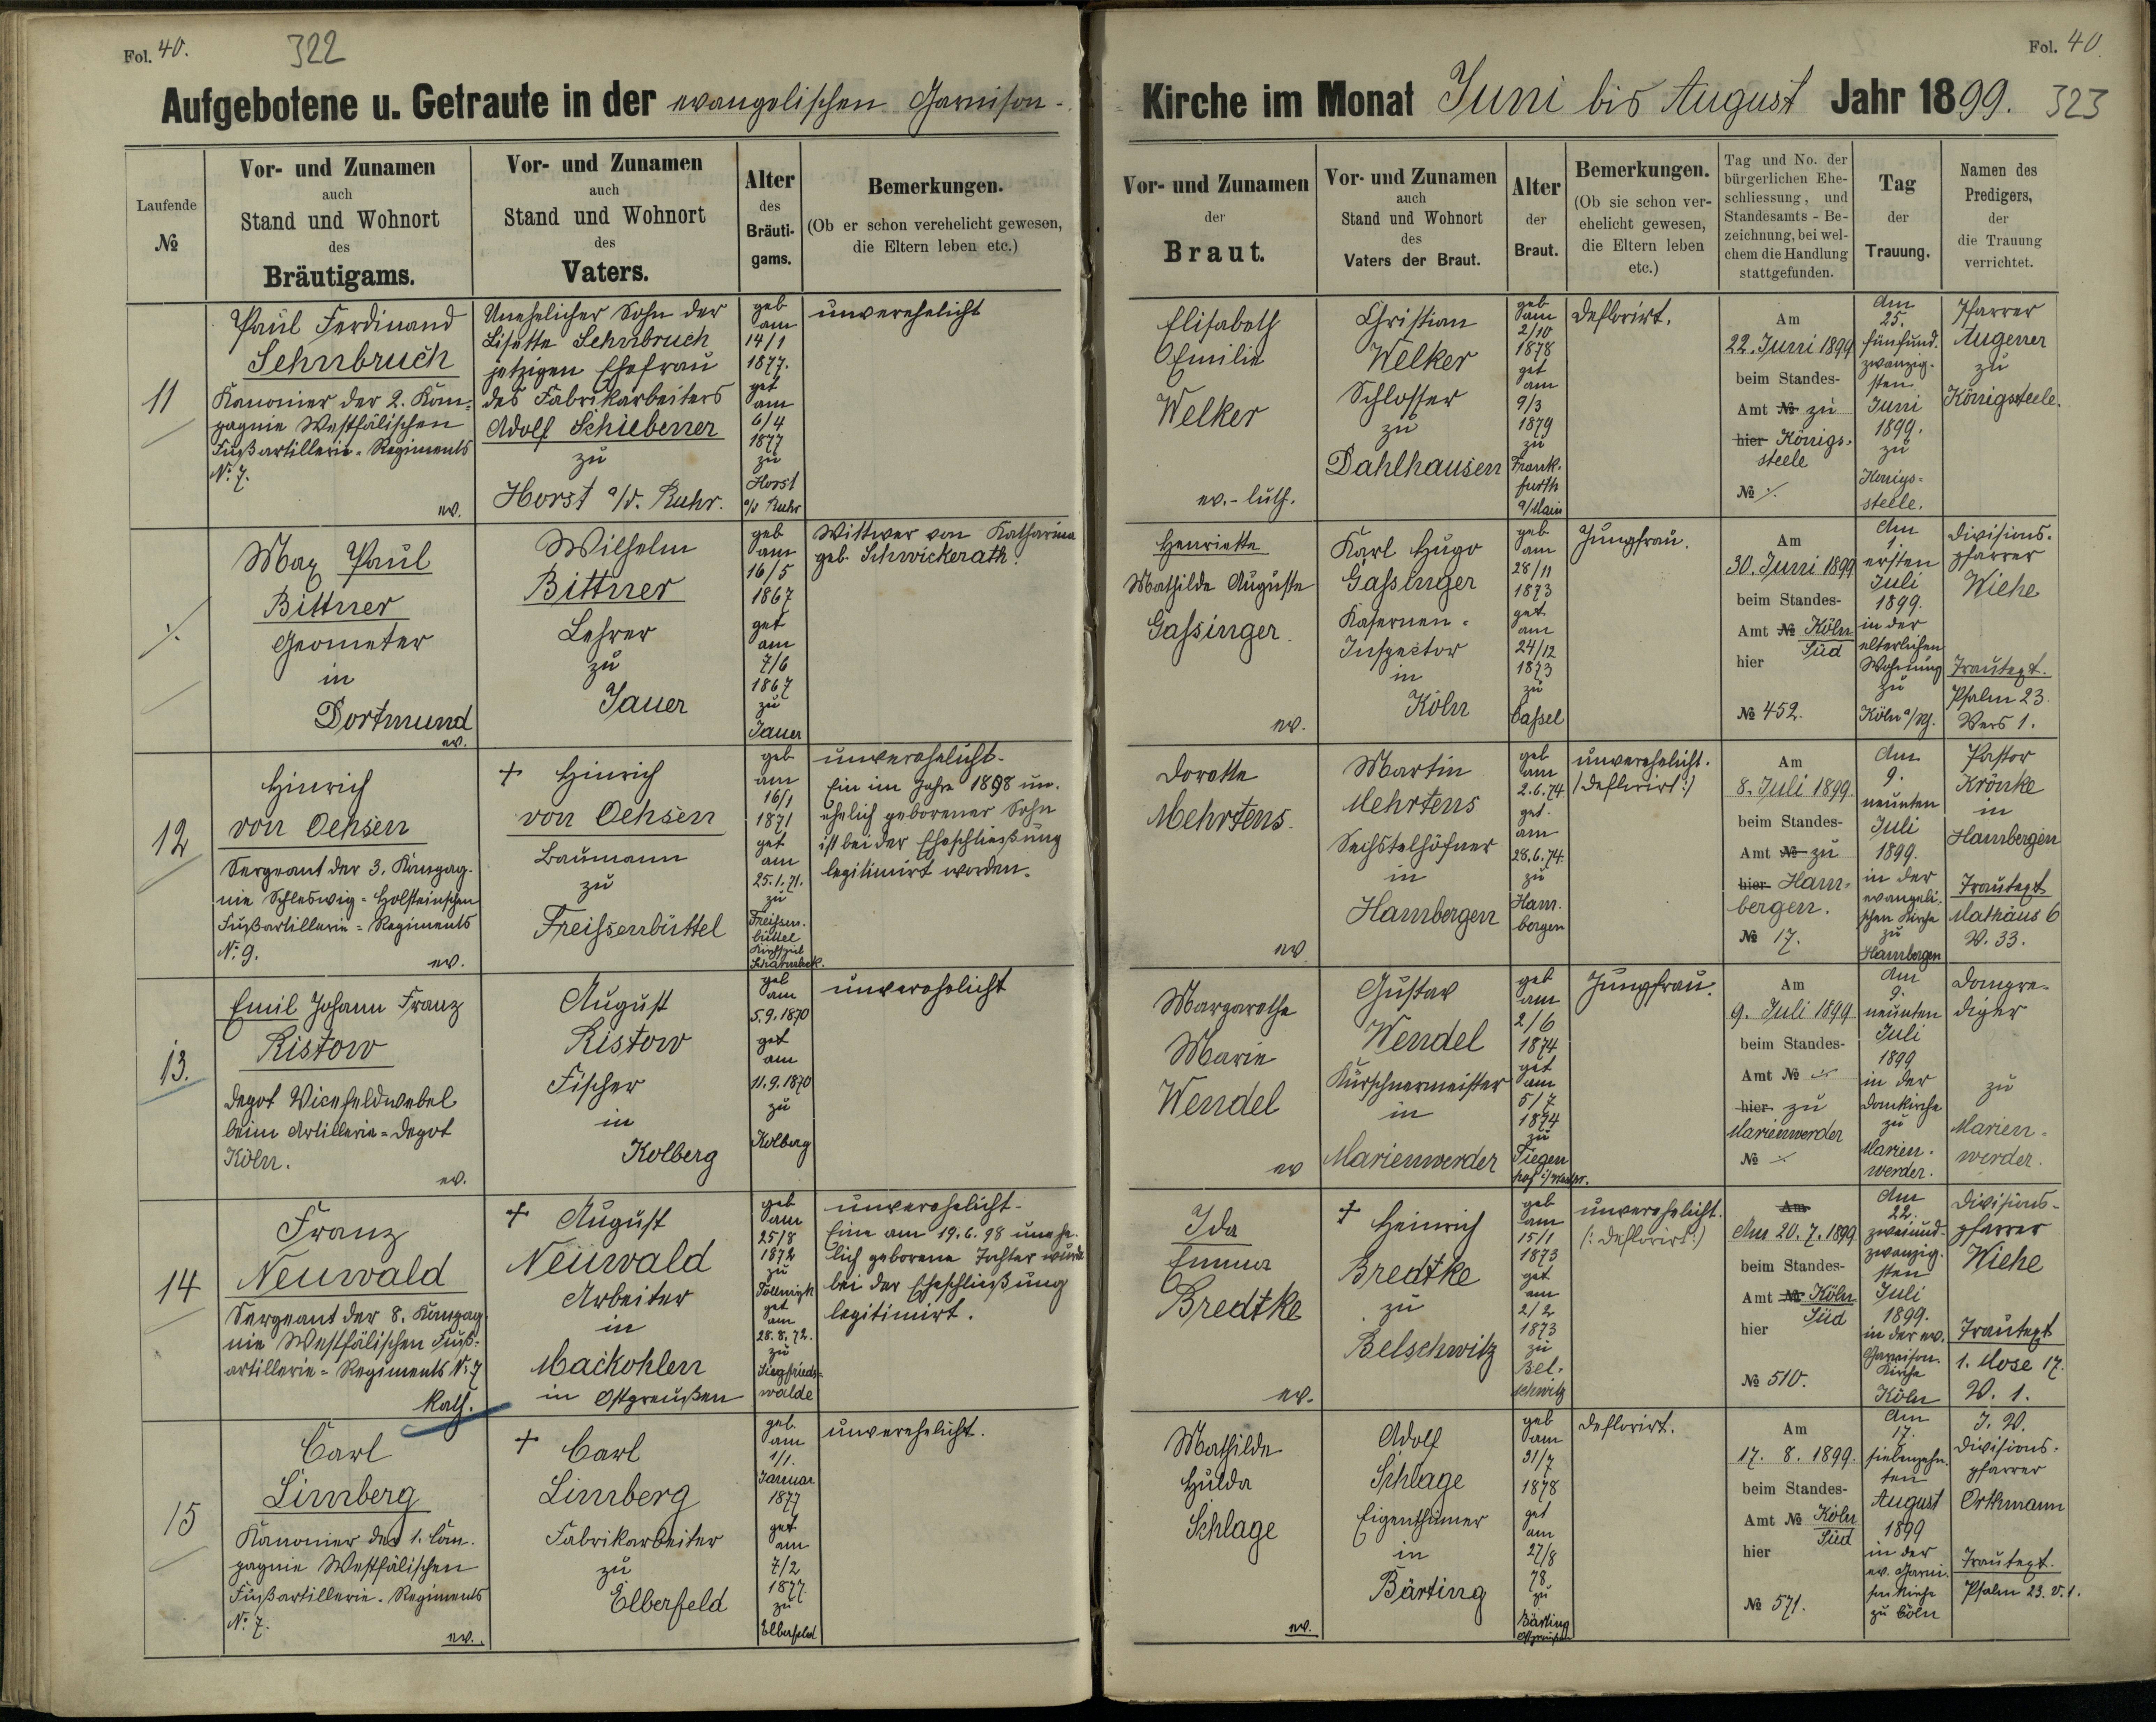 Fol. 40.
322
Aufgebotene u. Getraute in der evangelischen Garnison-
Laufende
№
Vor- und Zunamen
auch
Stand und Wohnort
des
Bräutigams.
Vor- und Zunamen
auch
Stand und Wohnort
des
Vaters.
Alter
des
Bräuti-
gams.
Bemerkungen.
(Ob er schon verehelicht gewesen,
die Eltern leben etc.)
11
Paul Ferdinand
Sehnbruch
Kanonier der 2. Kom-
pagnie Westfälischen
Fußartillerie-Regiments
No. 7.
ev.
Unehelicher Sohn der
Lisette Sehnbruch
jetzigen Ehefrau
des Fabrikarbeiters
Adolf Schiebener
zu
Horst a/d. Ruhr.
geb
am
14/1
1877.
get
am
6/4
1877
zu
Horst
a/d Ruhr
unverehelicht
./.
Max Paul
Bittner
Geometer
in
Dortmund
ev.
Wilhelm
Bittner
Lehrer
zu
Jauer
geb
am
16/5
1867
get
am
7/6
1867
zu
Jauer
Wittwer von Katharina
geb. Schwickerath.
12
Hinrich
von Oehsen
Sergeant der 3. Kompag-
nie Schleswig-Holsteinschen
Fußartillerie-Regiments
No. 9.
ev.
+ Hinrich
von Oehsen
Baumann
zu
Freissenbüttel
geb
am
16/1
1871
get
am
25.1.71.
zu
Freissen-
büttel
Kirchspiel
Scharmbeck.
unverehelicht.
Ein im Jahre 1898 un-
ehelich geborener Sohn
ist bei der Eheschließung
legitimirt worden.
13.
Emil Johann Franz
Ristow
Depot Vicefeldwebel
beim Artillerie-Depot
Köln.
ev.
August
Ristow
Fischer
in
Kolberg
geb
am
5.9.1870
get
am
11.9.1870
zu
Kolberg
unverehelicht
14
Franz
Neuwald
Sergeant der 8. Kompag
nie Westfälischen Fuß-
artillerie-Regiments No. 7
kath.
+ August
Neuwald
Arbeiter
in
Maikohlen
in Ostpreußen
geb
am
25/8
1872
zu
get
am
28.8.72.
zu
Siegfrieds-
walde
unverehelicht.
Eine am 19.6.98 unehe-
lich geborene Tochter wurde
bei der Eheschließung
legitimirt.
15
Carl
Limberg
Kanonier der 1. Com-
pagnie Westfälischen
Fußartillerie-Regiments
No. 7.
ev.
+ Carl
Limberg
Fabrikarbeiter
zu
Elberfeld
geb.
am
1/1.
Januar
1877
get
am
7/2
1877.
zu
Elberfeld
unverehelicht.
Fol. 40.
Kirche im Monat Juni bis August Jahr 1899. 323
Vor- und Zunamen
der
Braut.
Vor- und Zunamen
auch
Stand und Wohnort
des
Vaters der Braut.
Alter
der
Braut.
Bemerkungen.
(Ob sie schon ver-
ehelicht gewesen,
die Eltern leben
etc.)
Tag und No. der
bürgerlichen Ehe-
schliessung, und
Standesamts-Be-
zeichnung, bei wel-
chem die Handlung
stattgefunden.
Tag
der
Trauung.
Namen des
Predigers,
der
die Trauung
verrichtet.
Elisabeth
Emilie
Welker
ev.-luth.
Christian
Welker
Schlosser
zu
Dahlhausen
geb
am
2/10
1878
get
am
9/3
1879
zu
Frank-
furth
a/Main
deflorirt.
Am
22. Juni 1899
beim Standes-
Amt № zu
hier Königs-
steele
№ ./.
Am
25.
fünfund-
zwanzig-
sten
Juni
1899.
zu
Königs-
steele.
Pfarrer
Augener
zu
Königssteele.
Henriette
Mathilde Auguste
Gassinger.
ev.
Karl Hugo
Gassinger
Kasernen-
Inspector
in
Köln
geb
am
28/11
1873
get
am
24/12
1873
zu
Cassel
Jungfrau.
Am
30. Juni 1899
beim Standes-
Amt № Köln
Süd
hier
№ 452.
Am
1.
ersten
Juli
1899.
in der
elterlichen
Wohnung
zu
Köln a/Rh.
Divisions-
pfarrer
Wiehe
Trautext.
Psalm 23.
Vers 1.
Dorothe
Mehrtens.
ev.
Martin
Mehrtens
Sechstelhöfner
in
Hambergen
geb
am
2.6.74
get.
am
28.6.74.
zu
Ham-
bergen
unverehelicht.
(deflorirt:)
Am
8. Juli 1899.
beim Standes-
Amt № zu
hier Ham-
bergen.
№ 17.
Am
9.
neunten
Juli
1899.
in der
evangeli-
schen Kirche
zu
Hambergen
Pastor
Krönke
in
Hambergen
Trautext
Mathäus 6
V. 33.
Margarethe
Marie
Wendel
ev
Gustav
Wendel
Kürschnermeister
in
Marienwerder
geb
am
2/6
1874
get
am
5/7
1874
zu
Tiegen
hof
Jungfrau.
Am
9. Juli 1899
beim Standes-
Amt № ./.
hier zu
Marienwerder
№ ./.
Am
9.
neunten
Juli
1899
in der
Domkirche
zu
Marien-
werder.
Dompre-
diger
zu
Marien-
werder.
Ida
Emma
Bredtke
ev.
+ Heinrich
Bredtke
zu
Belschwitz
geb
am
15/1
1873
get
am
2/2
1873
zu
Bel-
schwitz
unverehelicht.
(: deflorirt:)
Am
Am 20.7.1899
beim Standes-
Amt № Köln
Süd
hier
№ 510.
Am
22.
zweiund-
zwanzig-
sten
Juli
1899.
in der ev.
Garnison-
Kirche
Köln
Divisions-
pfarrer
Wiehe
Trautext
1. Mose 17.
V. 1.
Mathilde
Hulda
Schlage
ev.
Adolf
Schlage
Eigenthümer
in
Bärting
geb
am
31/7
1878
get
am
27/8
78.
zu
Bärting
Ostpreußen
deflorirt.
Am
17. 8. 1899.
beim Standes-
Amt № Köln
Süd
hier
№ 571.
Am
17.
siebenzehn-
ten
August
1899
in der
ev. Garni-
son Kirche
zu Cöln
I. V.
Divisions-
pfarrer
Orthmann
Trautext.
Psalm 23. V. 1.